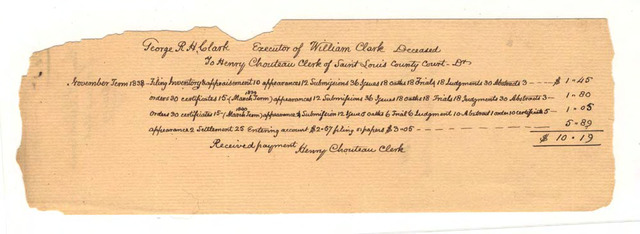 George R.H. Clark Executor of William Clark Deceased
To Henry Chouteau Clerk of Saint Louis County Court - Dr
November Term 1838 - Filing Inventory & appraisement 10 appearances 12 Submissions 36 Issues 18 oaths 18 Trials 18 Judgments 30 Abstracts 3 - $ 1-45
orders 30 certificates 15 (March Term) appearances 12 Submissions 36 Issues 18 oaths 18 Trials 18 Judgments 30 Abstracts 3 - 1-80
Orders 30 certificates 15 (March Term) appearance 4 Submission 12 Issues 6 oaths 6 Trial 6 Judgment 10 Abstract 1 order 10 certificate 5 - 1-05
appearance 2 Settlement 25 Entering account $2-07 filing 51 papers $3-05 - 5-89
$ 10-19
Received payment Henry Chouteau Clerk